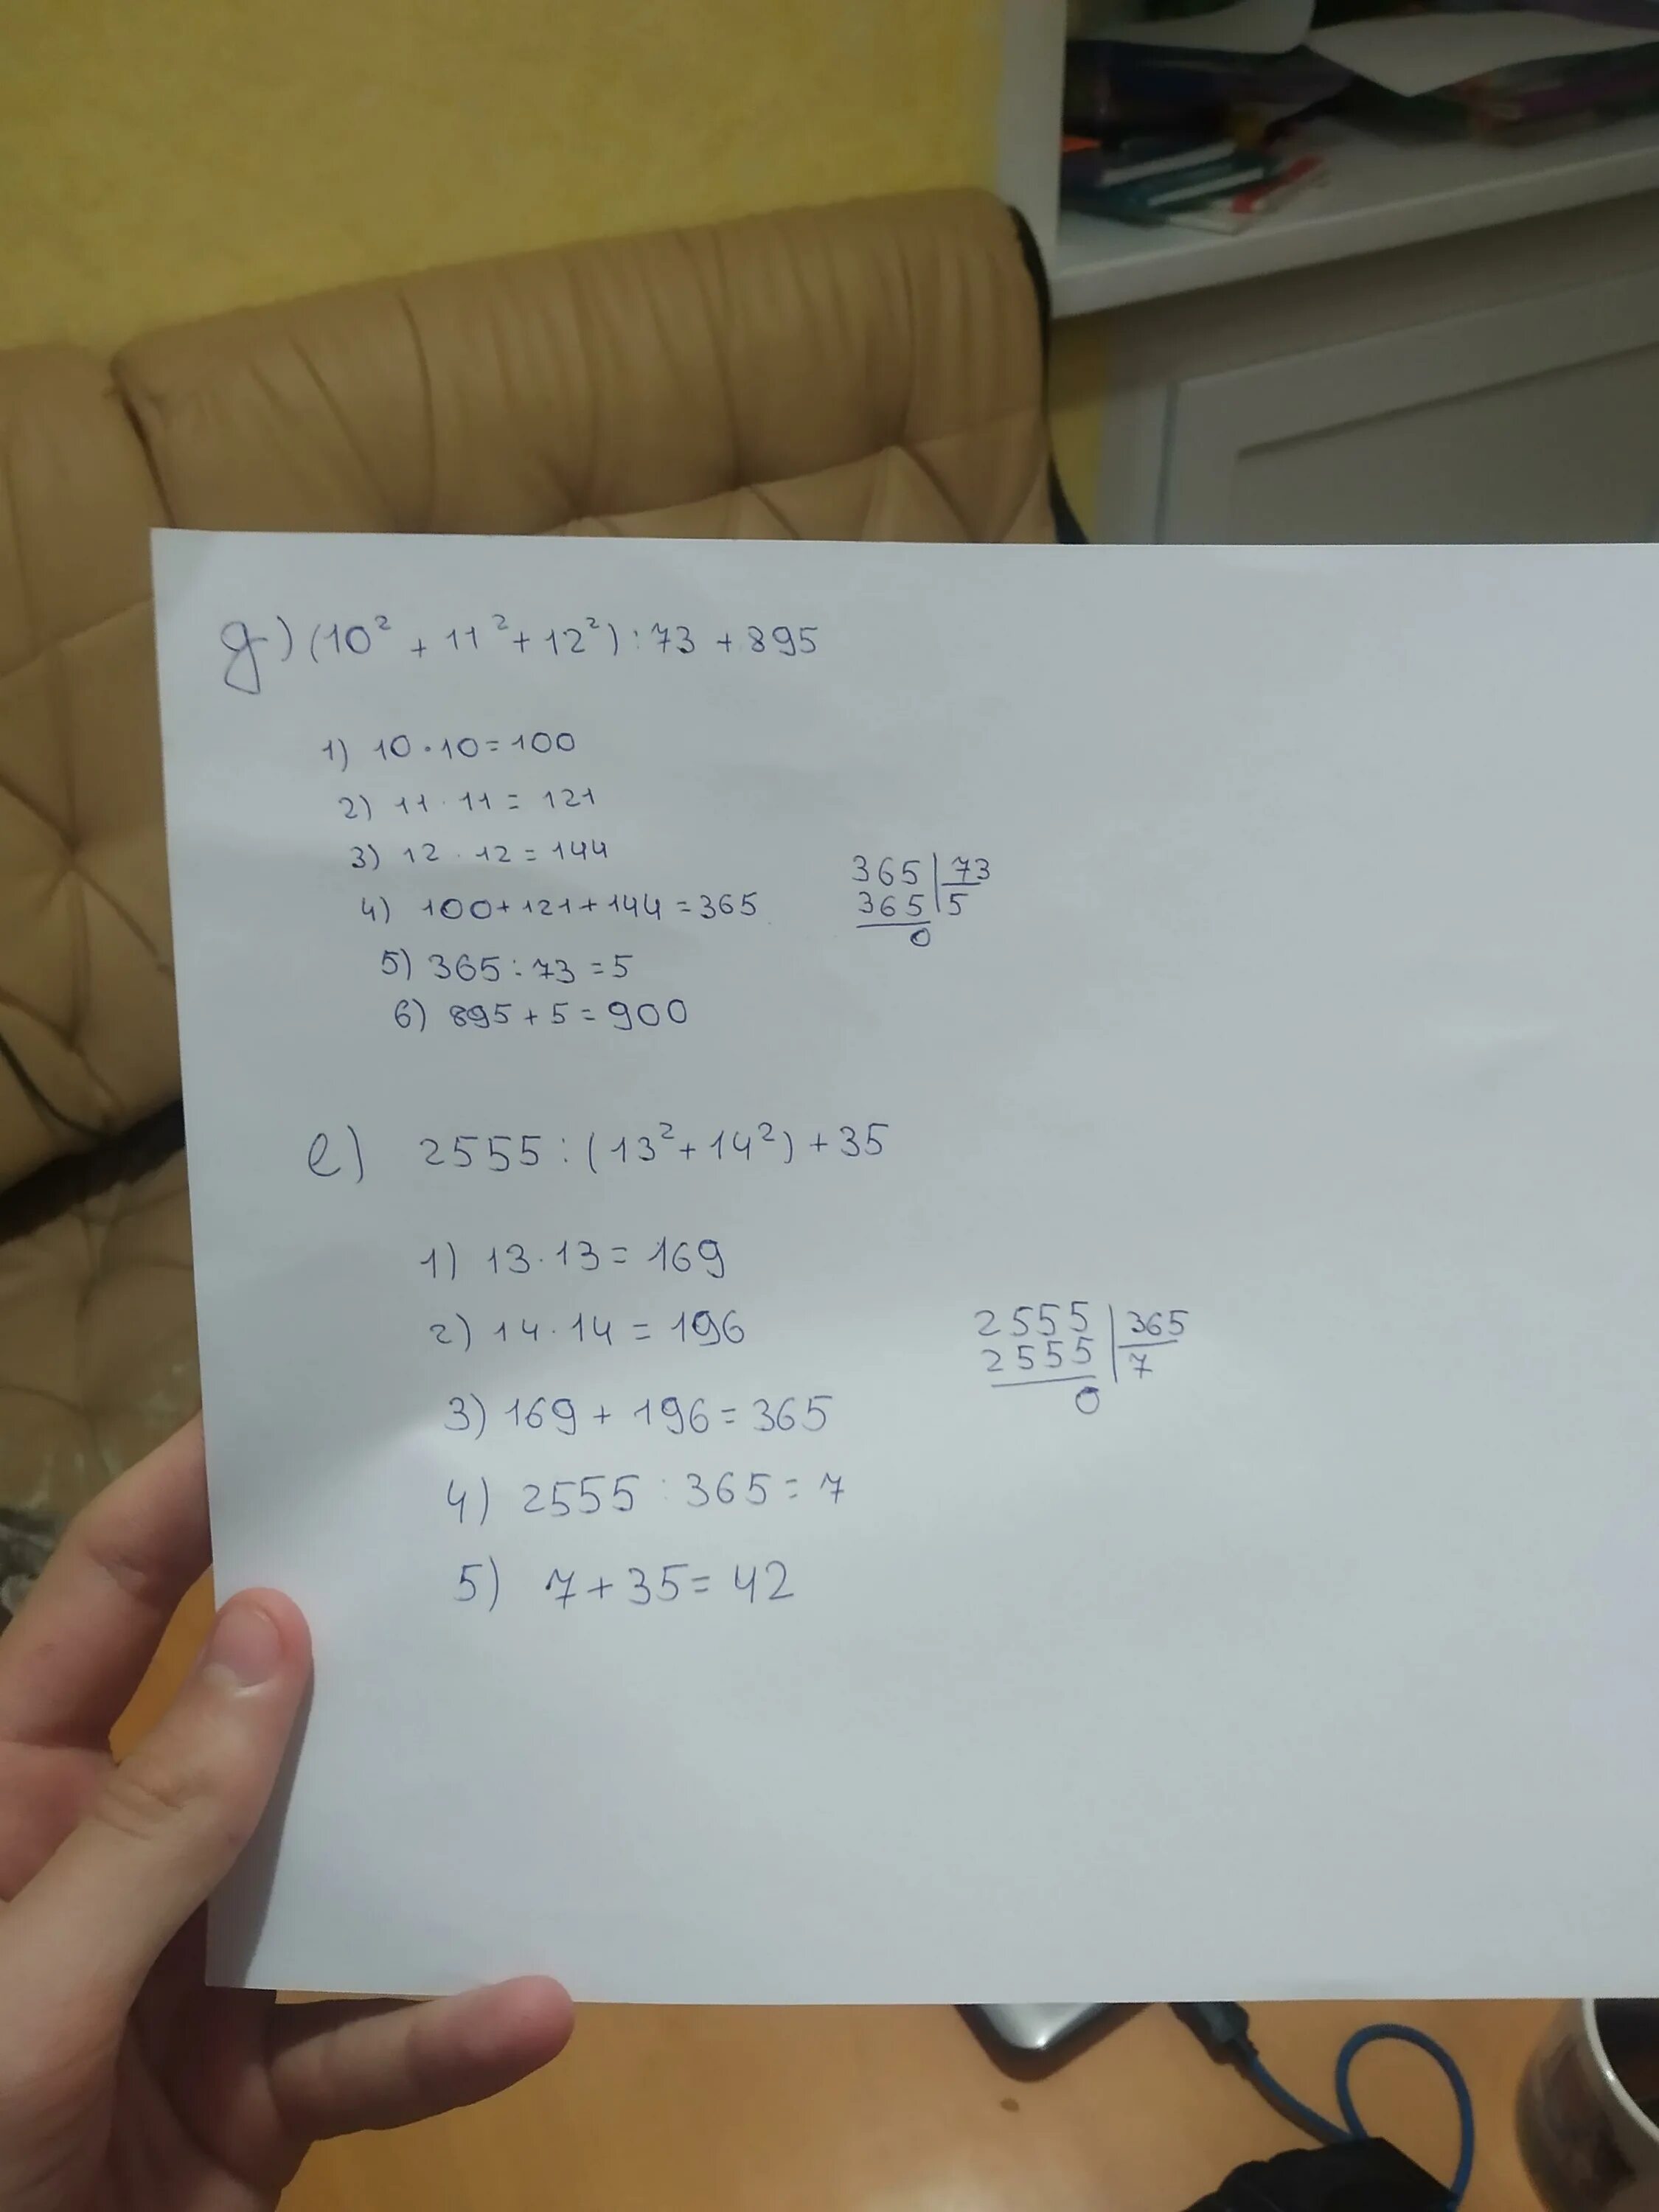 д) (10² + 11² + 12²) : 73 + 895
1) 10 · 10 = 100
2) 11 · 11 = 121
3) 12 · 12 = 144
4) 100 + 121 + 144 = 365
5) 365 : 73 = 5
6) 895 + 5 = 900
365 | 73
365 | 5
0
е) 2555 : (13² + 14²) + 35
1) 13 · 13 = 169
2) 14 · 14 = 196
3) 169 + 196 = 365
4) 2555 : 365 = 7
5) 7 + 35 = 42
2555 | 365
2555 | 7
0